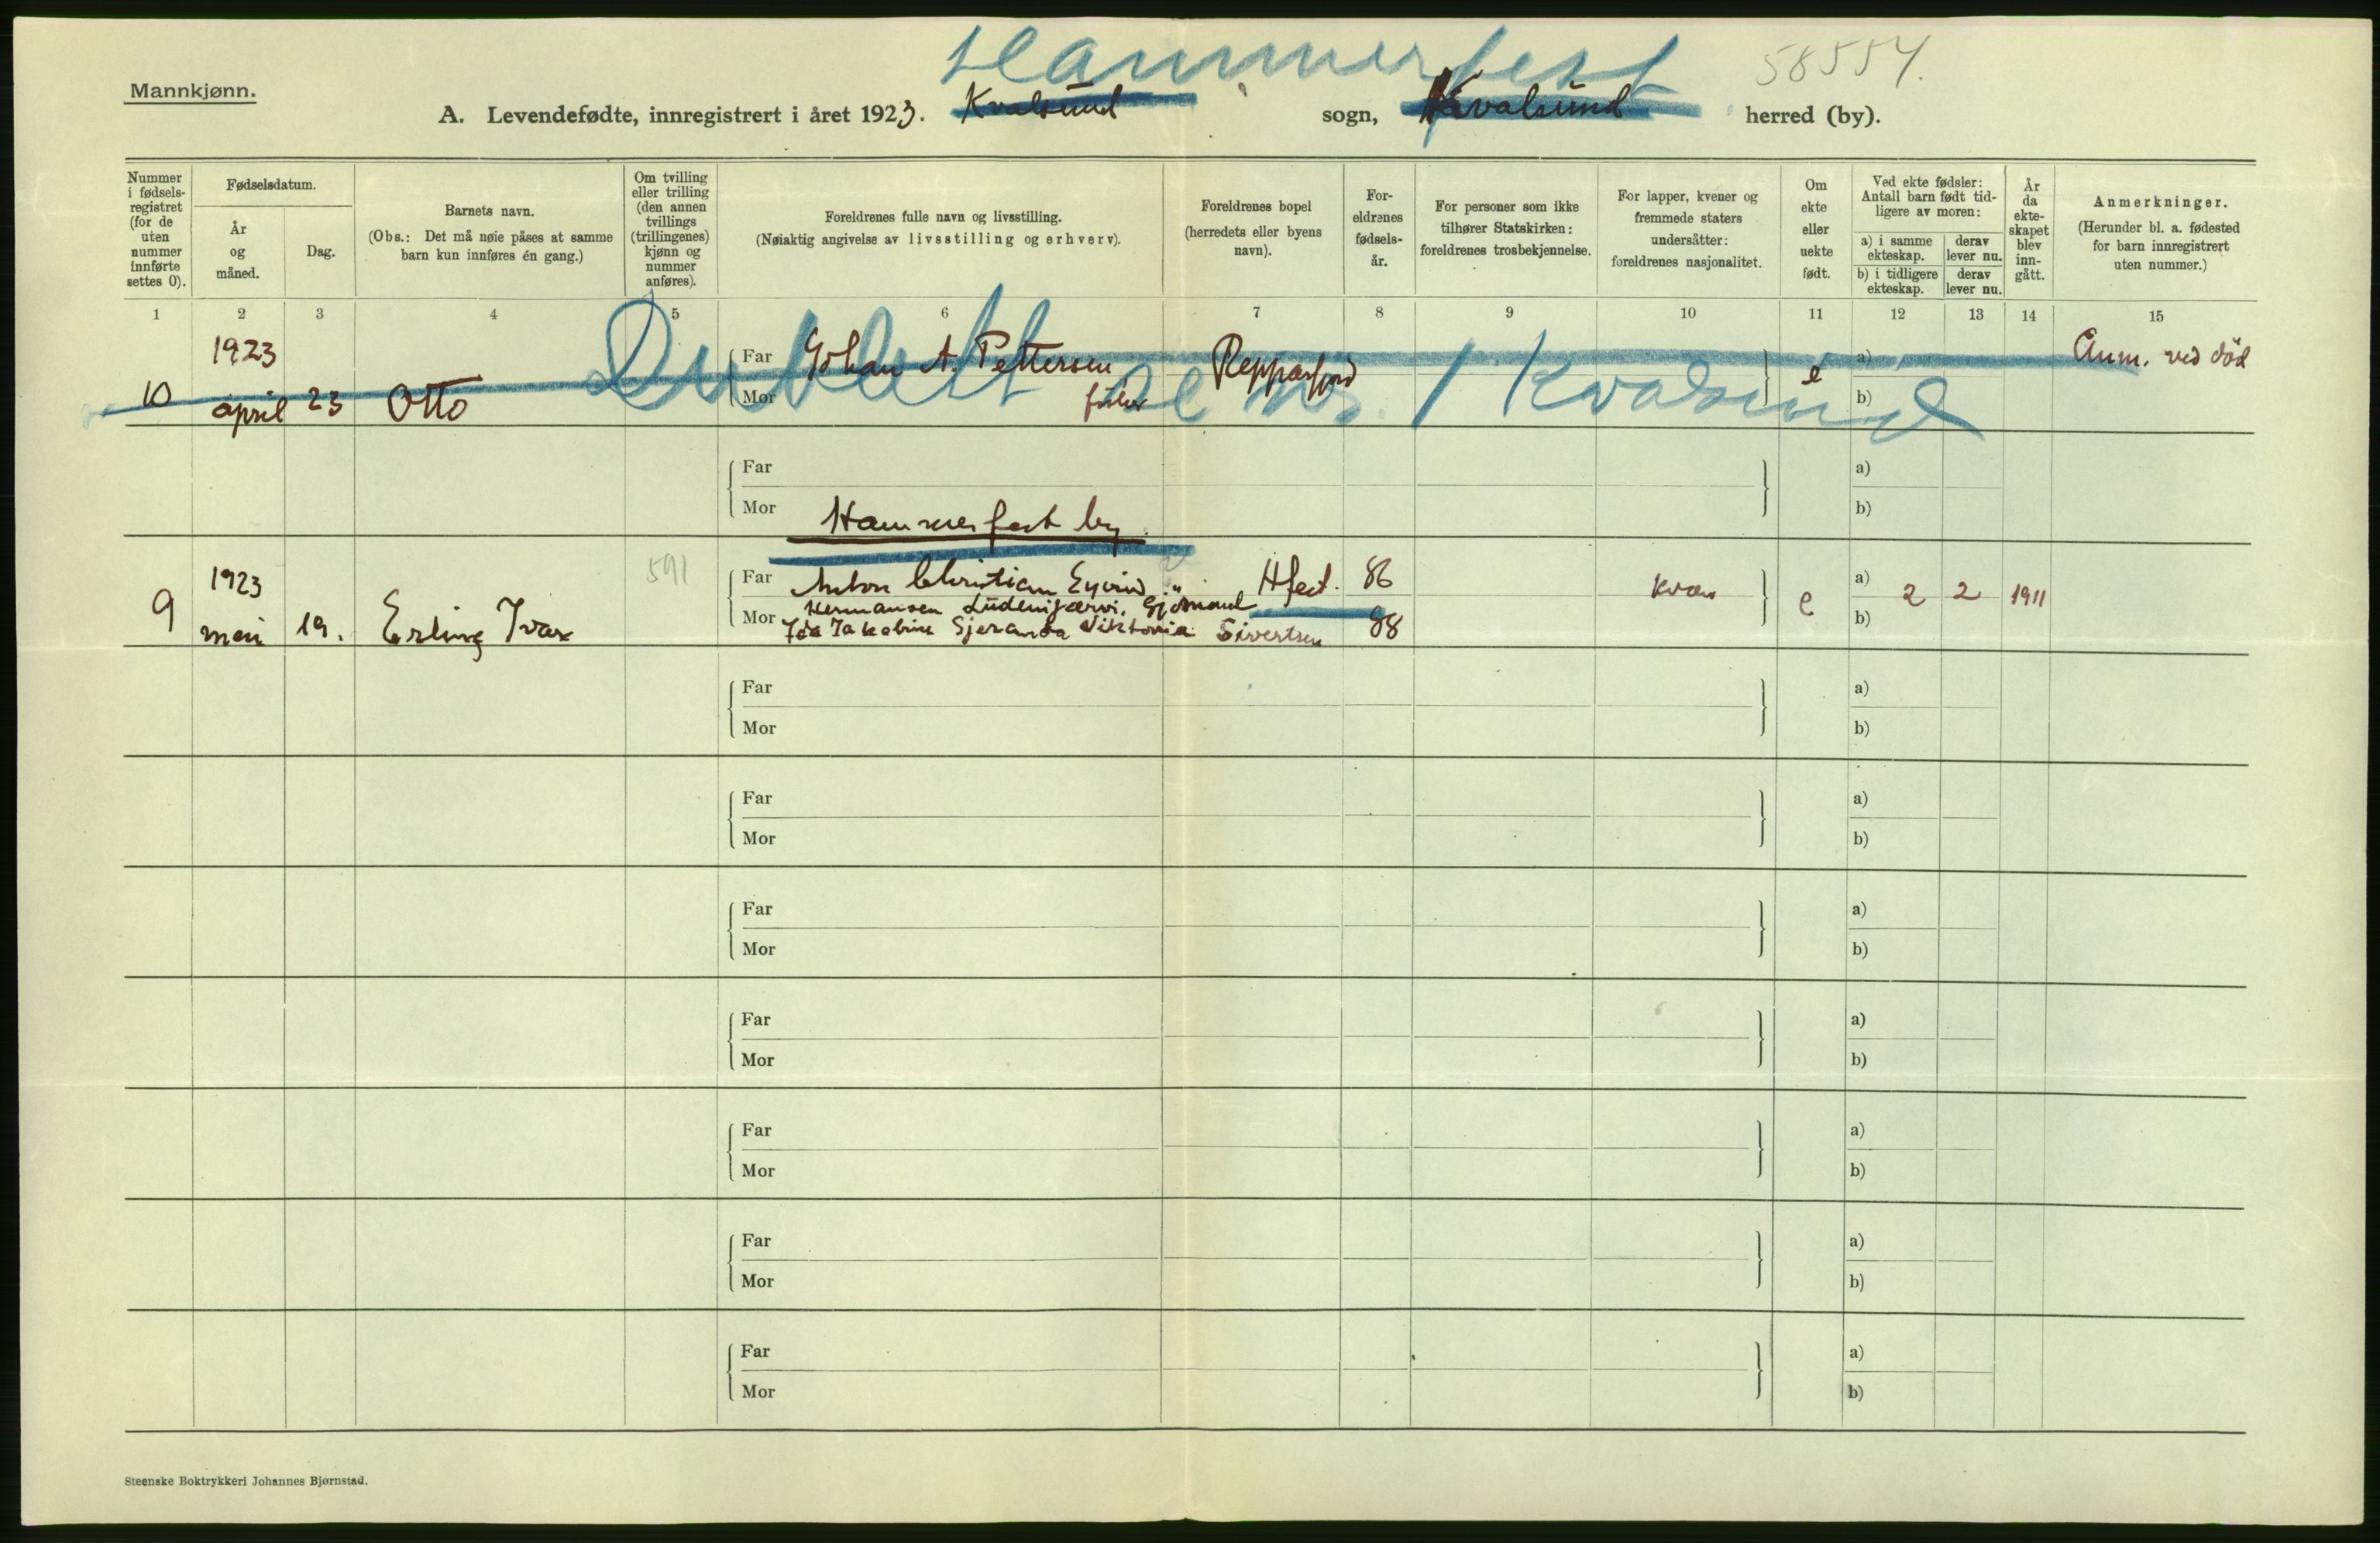 Hammerfest
58554.
Mannkjønn.
A. Levendefødte, innregistrert i året 1923. Kvalsund sogn, Kvalsund herred (by).
Nummer
i fødsels-
registret
(for de
uten
nummer
innførte
settes 0).
Fødselsdatum.
År
og
måned.
Dag.
Barnets navn.
(Obs.: Det må nøie påses at samme
barn kun innføres én gang.)
Om tvilling
eller trilling
(den annen
tvillings
(trillingenes)
kjønn og
nummer
anføres).
Foreldrenes fulle navn og livsstilling.
(Nøiaktig angivelse av livsstilling og erhverv).
Foreldrenes bopel
(herredets eller byens
navn).
For-
eldrenes
fødsels-
år.
For personer som ikke
tilhører Statskirken:
foreldrenes trosbekjennelse.
For lapper, kvener og
fremmede staters
undersåtter:
foreldrenes nasjonalitet.
Om
ekte
eller
uekte
født.
Ved ekte fødsler:
Antall barn født tid-
ligere av moren:
a) i samme
ekteskap.
derav
lever nu.
b) i tidligere
ekteskap.
derav
lever nu.
År
da
ekte-
skapet
blev
inn-
gått.
Anmerkninger.
(Herunder bl. a. fødested
for barn innregistrert
uten nummer.)
1 2 3 4 5 6 7 8 9 10 11 12 13 14 15
10 1923 april 23 Otto
Far Johan A. Pettersen Repparfjord e a) Anm. ved död
Mor b)
Dublett se nr. 1 Kvalsund
Far a)
Mor b)
Hammerfest by.
9 1923 mai 19. Erling Ivar 591
Far Anton Christian Eyvind Hfest. 86 kvæn e a) 2 2 1911
Hermansen
Mor Ida Jakobine Viktoria Sivertsen 88 b)
Far a)
Mor b)
Far a)
Mor b)
Far a)
Mor b)
Far a)
Mor b)
Far a)
Mor b)
Far a)
Mor b)
Far a)
Mor b)
Steenske Boktrykkeri Johannes Bjørnstad.